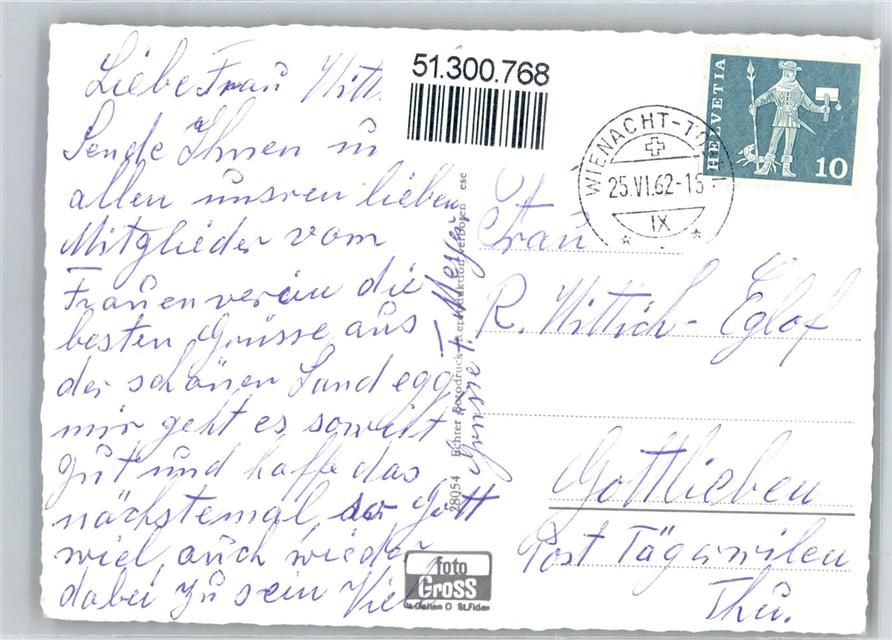 Liebe Frau Witt
Sende Ihnen u
allen unsren lieben
Mitglieder vom
Frauenverein die
besten Grüsse aus
der schönen Landegg
mir geht es soweit
gut und hoffe das
nächstemal, so Gott
will, auch wieder
dabei zu sein Viel
Grüsse
51.300.768
WIENACHT-TO
25.VI.62-15
IX
HELVETIA
10
Frau
R. Wittich-Eglof
Gottlieben
Post Tägerwilen
Thu.
28054 Echter Fotodruck Reproduktion verboten ese
foto
Gross
St.Gallen O St.Fiden